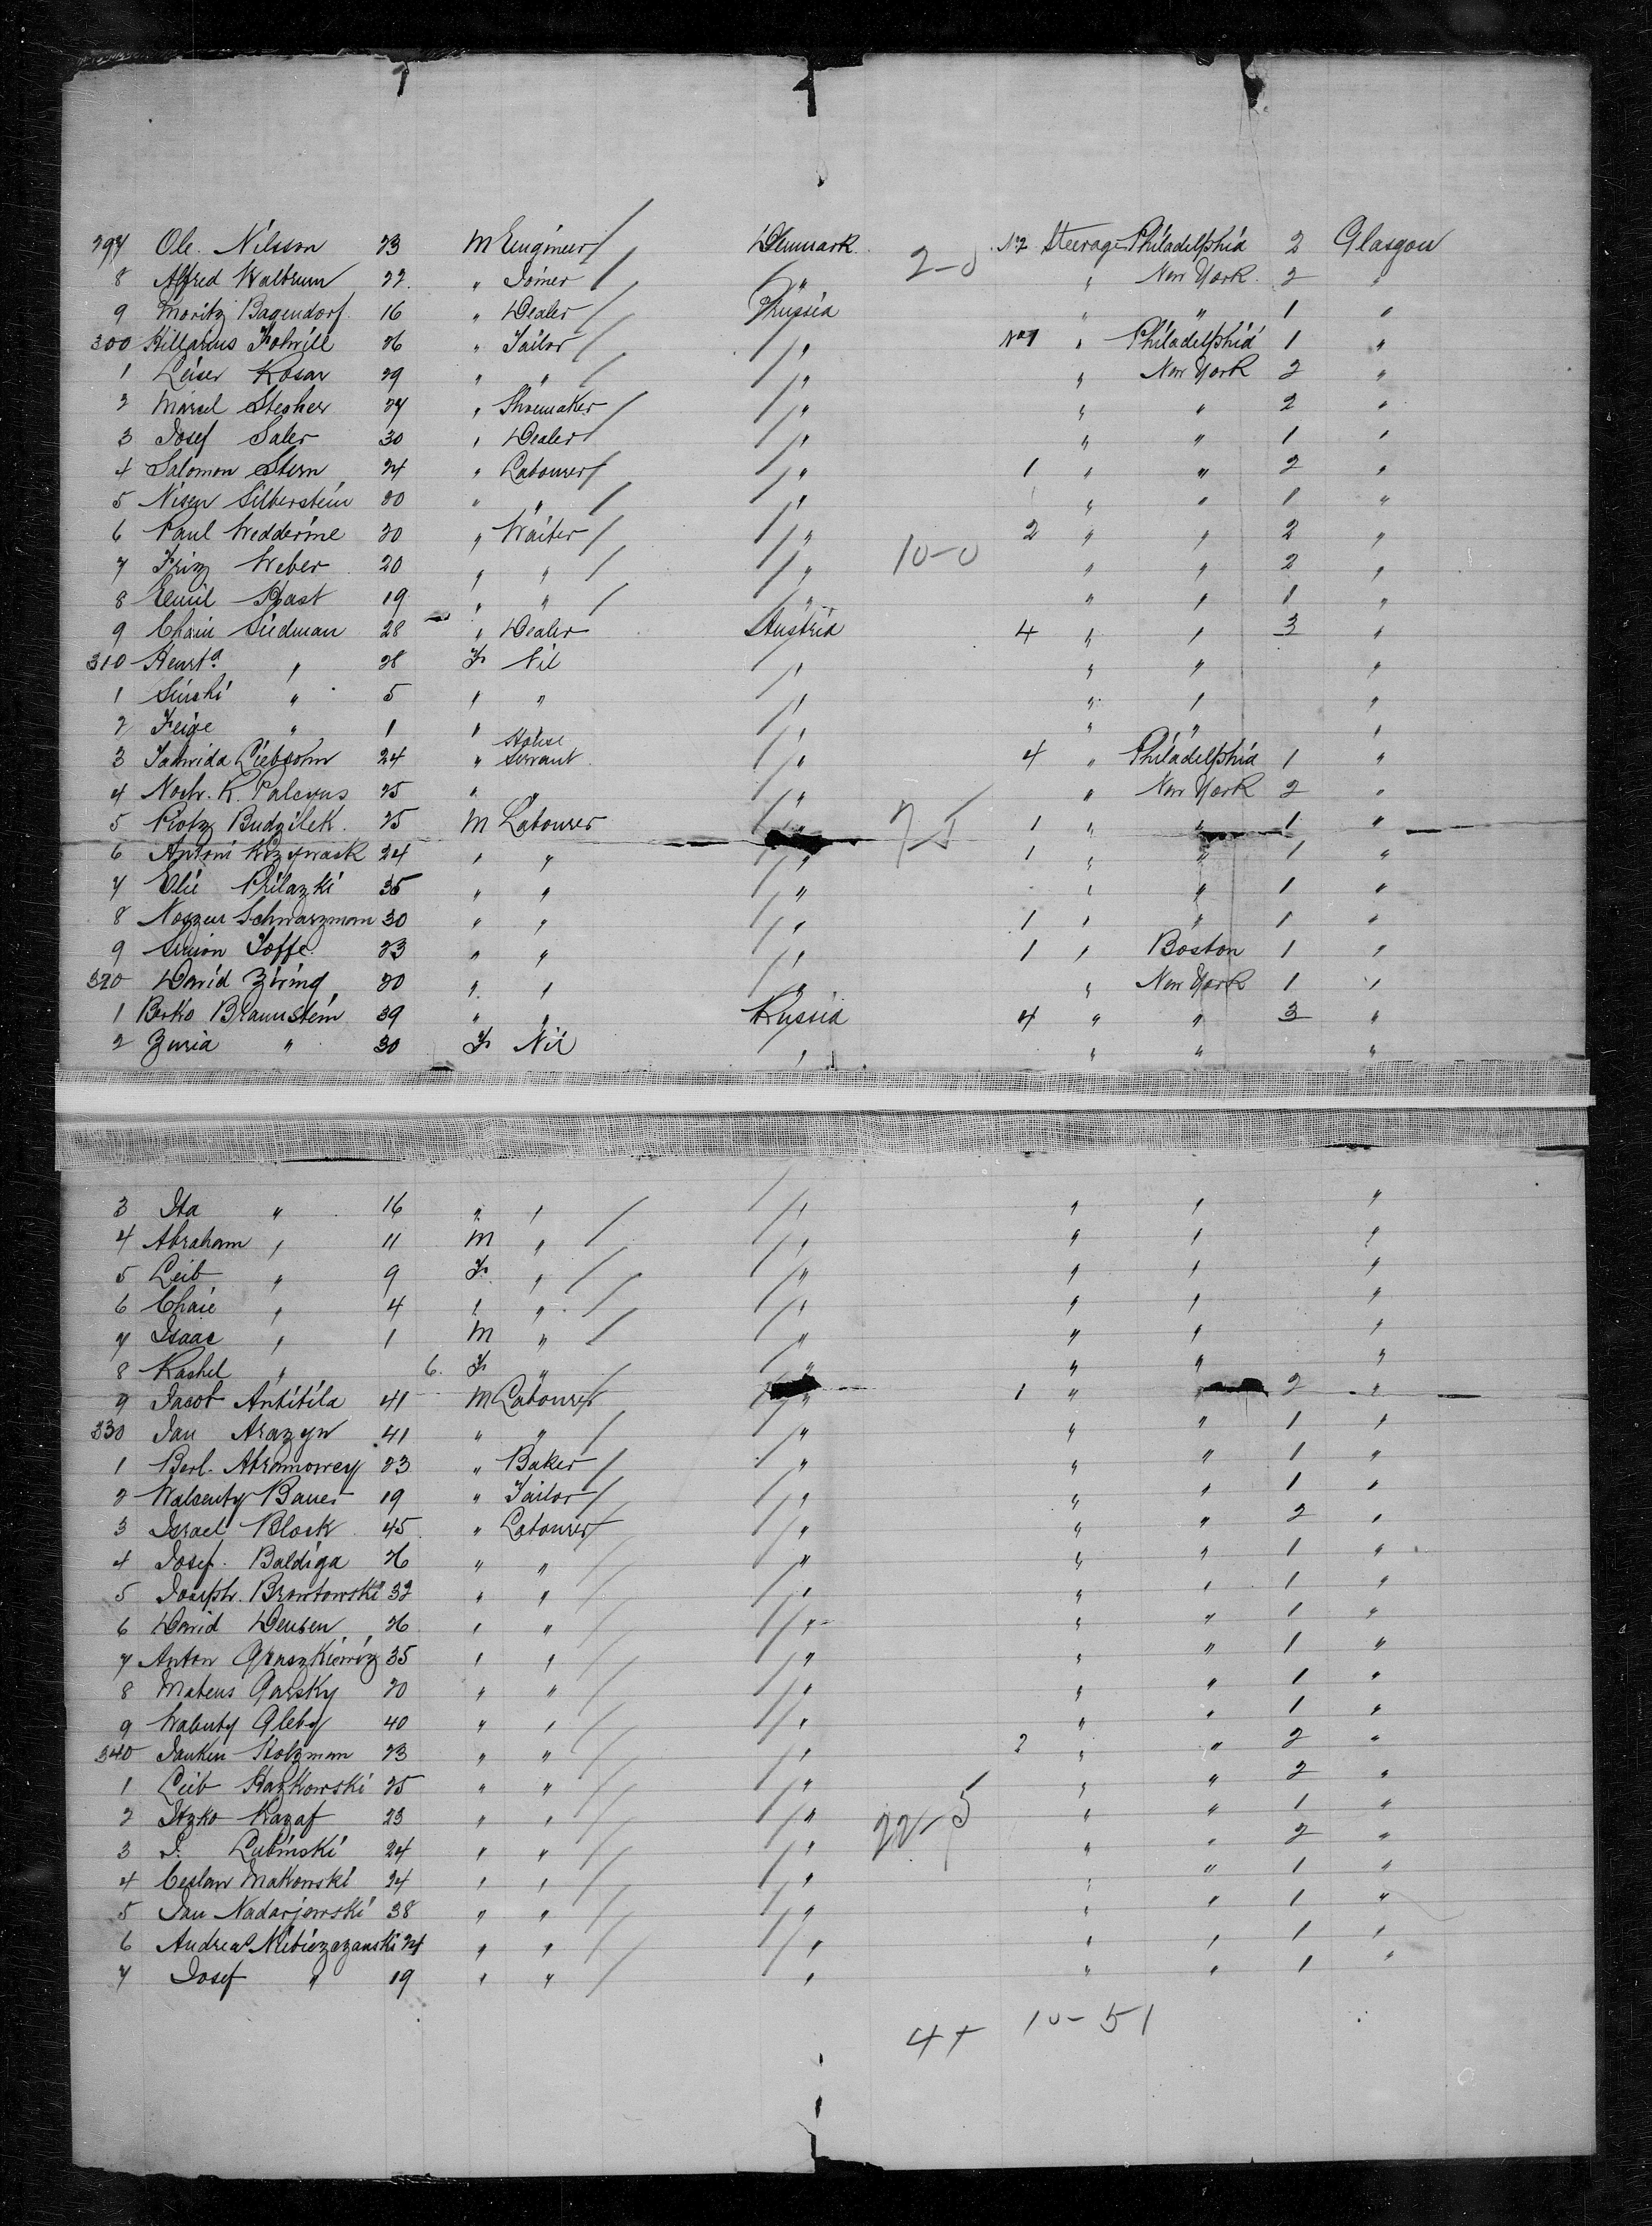 297 Ole. Nilsson 23 M Engineer Denmark No 2 Steerage Philadelphia 2 Glasgow
8 Alfred Walbrum 22 " Joiner " 2-0 " New York 2 "
9 Moritz Bagendorf 16 " Dealer Prussia " " 1 "
300 26 " Tailor " No 1 " Philadelphia 1 "
1 Leiser Kosar 29 " " " " New York 2 "
2 Marcel 27 " Shoemaker " " " 2 "
3 Josef Saler 30 " Dealer " " " 1 "
4 Salomon Stern 24 " Labourer " 1 " " 2 "
5 Nisen Silberstein 20 " " " " " 1 "
6 Paul Wedderine 20 " Waiter " 2 " " 2 "
7 Friz Weber 20 " " " 10-0 " " 2 "
8 Emil Hast 19 " " " " " 1 "
9 Chain Siedman 28 " Dealer Austria 4 " " 3 "
310 " 28 F Nil " " " "
1 Surski " 5 " " " " " "
2 Feige " 1 " " " " "
3 Liebsohn 24 " House Servant " 4 " Philadelphia 1 "
4 Noch. K. Paleyus 25 " " " " New York 2 "
5 Piotz Budzilek 25 M Labourer " 7-5 1 " " 1 "
6 Antoni 24 " " " 1 " " 1 "
7 Elie Prilazki 35 " " " " " 1 "
8 Schwarzman 30 " " " 1 " " 1 "
9 Simon Joffe 23 " " " 1 " Boston 1 "
320 David Ziring 20 " " " " New York 1 "
1 Berko Braunstein 39 " " Russia 4 " " 3 "
2 Zuria " 30 F Nil " " " "
3 Ita " 16 " " " " " "
4 Abraham " 11 M " " " " "
5 Leib " 9 F " " " " "
6 Chaie " 4 " " " " " "
7 Isaac " 1 M " " " " "
8 Rashel " 6. F " " " " "
9 Jacob Antitila 41 M Labourer " 1 " " 2 "
330 Jan Arazyn 41 " " " " " 1 "
1 Berl. Abramowey 23 " Baker " " " 1 "
2 Walsenty Bauer 19 " Tailor " " " 1 "
3 Israel Block 45 " Labourer " " " 2 "
4 Josef. Baldiga 26 " " " " " 1 "
5 Joseph. Brontowski 32 " " " " " 1 "
6 David Deusen 26 " " " " " 1 "
7 Anton Gruszkiewiz 35 " " " " " 1 "
8 Mateus Garsky 20 " " " " " 1 "
9 Waluty Gleby 40 " " " " " 1 "
340 Jankin Holzman 23 " " " 2 " " 2 "
1 Leib Hazkowski 25 " " " " " 2 "
2 Itzko Kazaf 23 " " " 22-5 " " 1 "
3 J. Lubinski 24 " " " " " 2 "
4 Ceslaw Makowski 24 " " " " " 1 "
5 Jan Nadarjewski 38 " " " " " 1 "
6 Andreas 24 " " " " " 1 "
7 Josef " 19 " " " " " 1 "
4+ 10-51